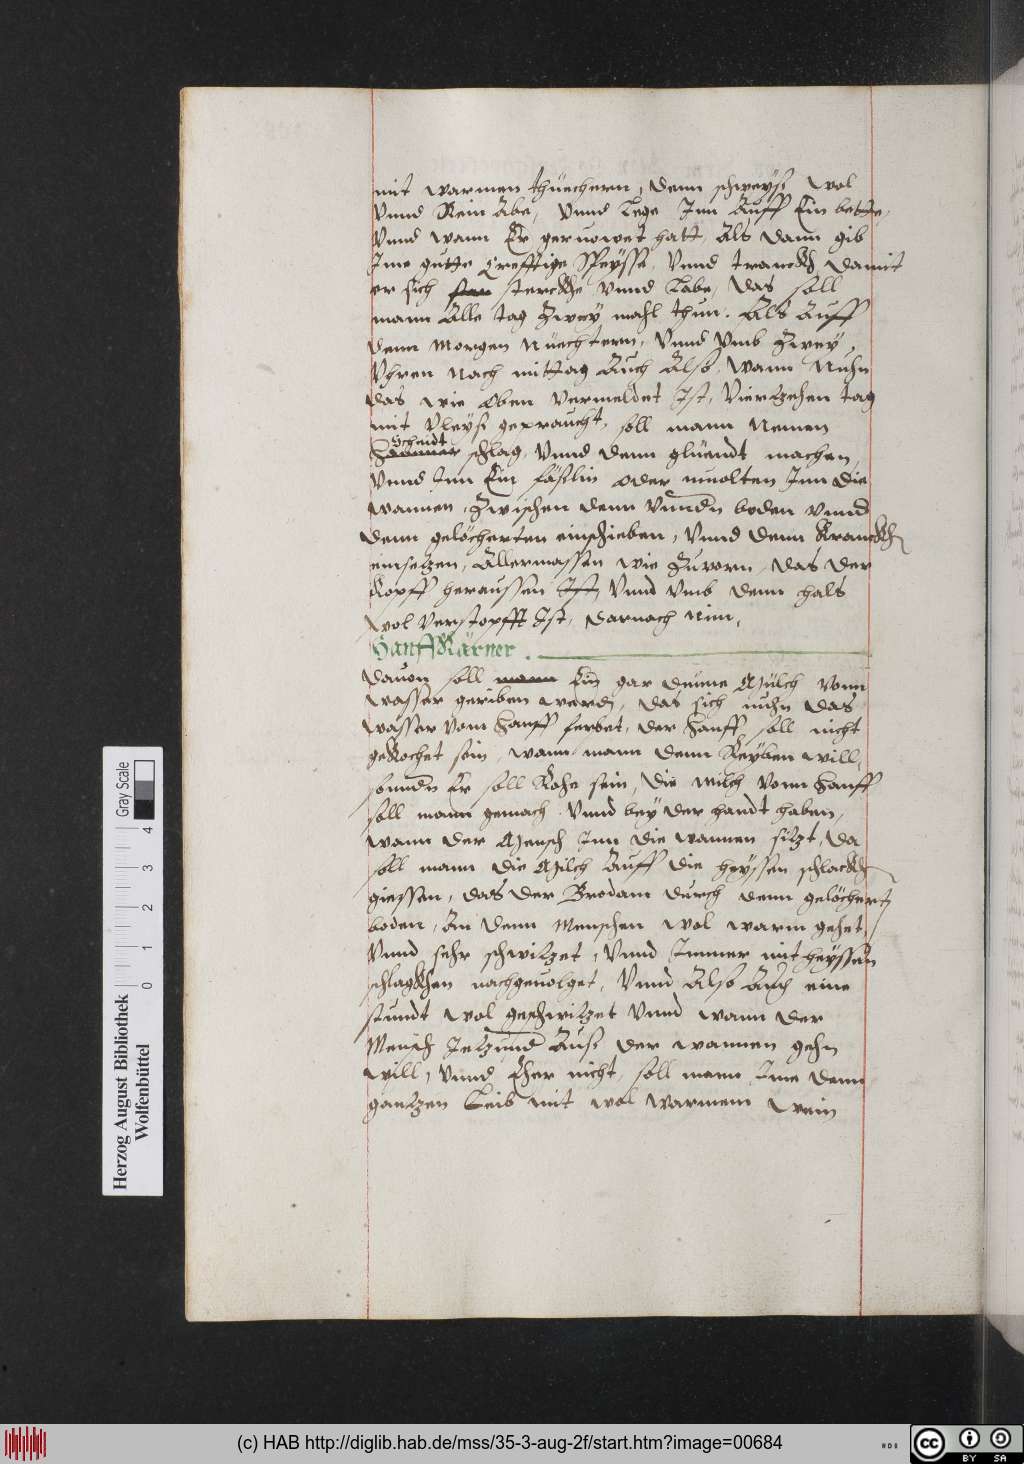 mit warmen thüechern, denn schweysß wol
Vnnd Rein Abe, Vnnd Lege Inn Auff Ein bette,
Vnnd wann Er geruowet hatt, Als dann gib
Ime gutte Crefftige Speysse, Vnnd tranckh damit
er sich sterckhe Vnnd Labe, das soll
mann Alle tag Zwey mahl thun. Als Auff
denn Morgen Nüechtern, Vnnd Vmb Zwey,
Vhren Nach mittag Auch Also, Wann Nuhn
das wie Oben Vermeldet Ist, Vierlzehen tag
mit Vleysß gepraucht, soll mann Nemen
Scheidt schlag, Vnnd denn glüendt machen,
Vnnd Inn Ein fäßlin oder muolten Inn die
wannen, Zwischen denn Vnndn boden Vnnd
denn gelöcherten einschieben, Vnnd denn Kranckh
einsetzen, Allermassen wie Zuvorn, das der
Kopff heraussen Ist, Vnnd Vmb denn hals
wol Verstopfft Ist, darnach Nim,
Hanff Kärner.
davon soll mann Ein gar deüme Milch Vonn
wasser geriben werdn, das sich nuhn das
wasser vom Hanff ferbet, der Hanff soll nicht
gekochet sein, wann mann denn Reyben will,
sonndn Er soll Rohe sein, die milch Vonn Hanff
soll mann gemach Vnnd bey der handt haben,
wann der Mensch Inn die wannen sitzt, da
soll mann die Milch Auff die heyssen schlackh
giessen, das der Brodam durch denn gelöchert
boden, An denn Menschen wol warm gehet,
Vnnd sehr schwitzet, Vnnd Immer mit heyssen
schlagkhen nachgeuolget, Vnnd Also Auch eine
stundt wol geschwitzet Vnnd wann der
Mensch Jetzund Auß der wannen gehn
will, Vnnd Eher nicht, soll mann Ime denn
gantzen Leib mit wol warmem wein
Herzog August Bibliothek
Wolfenbüttel
Gray Scale
0 1 2 3 4
(c) HAB http://diglib.hab.de/mss/35-3-aug-2f/start.htm?image=00684
cc BY SA